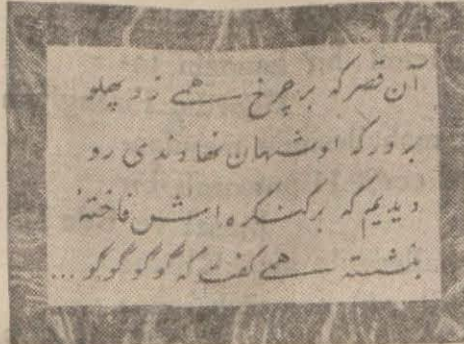 آن قصر که بر چرخ همی زد پهلو
بر درگه او شهان نهادندی رو
دیدیم که بر کنگره اش فاختهٔ
بنشسته همی گفت که گو گو گو گو ...